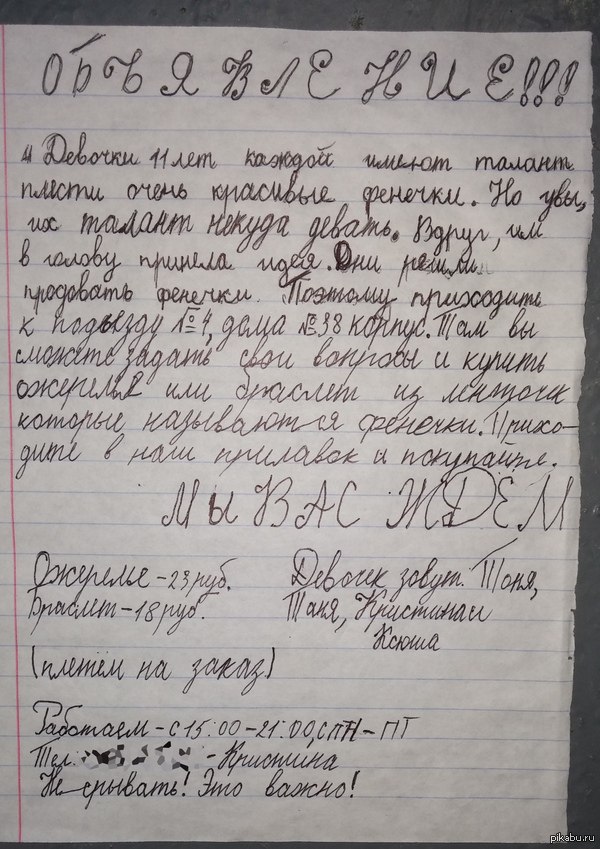 ОБЪЯВЛЕНИЕ!!!
" Девочки 11 лет каждой имеют талант
плести очень красивые фенечки. Но увы,
их талант некуда девать. Вдруг, им
в голову пришла идея. Они решили
продовать фенечки. Поэтому приходите
к подъезду №4, дома №38 корпус. Там вы
сможете задать свои вопросы и купить
ожерелье или браслет из ниточек
которые называются фенечки. Прихо-
дите в наш прилавок и покупайте.
МЫ ВАС ЖДЕМ
Ожерелье - 23 руб.
Браслет - 18 руб.
(плетем на заказ)
Девочек зовут. Тоня,
Таня, Кристина и
Ксюша
Работаем - с 15:00-21:00, с ПН - ПТ
Тел. - Кристина
Не срывать! Это важно!
pikabu.ru